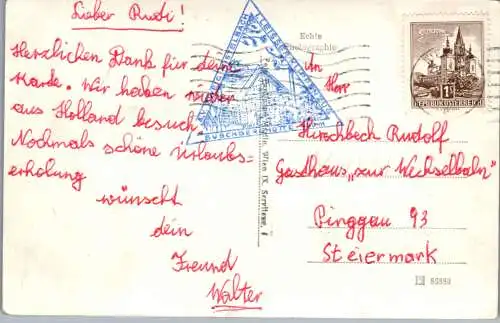 Lieber Rudi!
Herzlichen Dank für deine
Karte. Wir haben wieder
aus Holland besuch
Nochmals schöne Urlaubs-
erholung
wünscht
dein
Freund
Walter
Echte
Photographie
BUSCHBERGHÜTTE
Wien IX.
An
Herr
Hirschbech Rudolf
Gasthaus „zur Wechselbahn"
Pinggau 93
Steiermark
REPUBLIK ÖSTERREICH